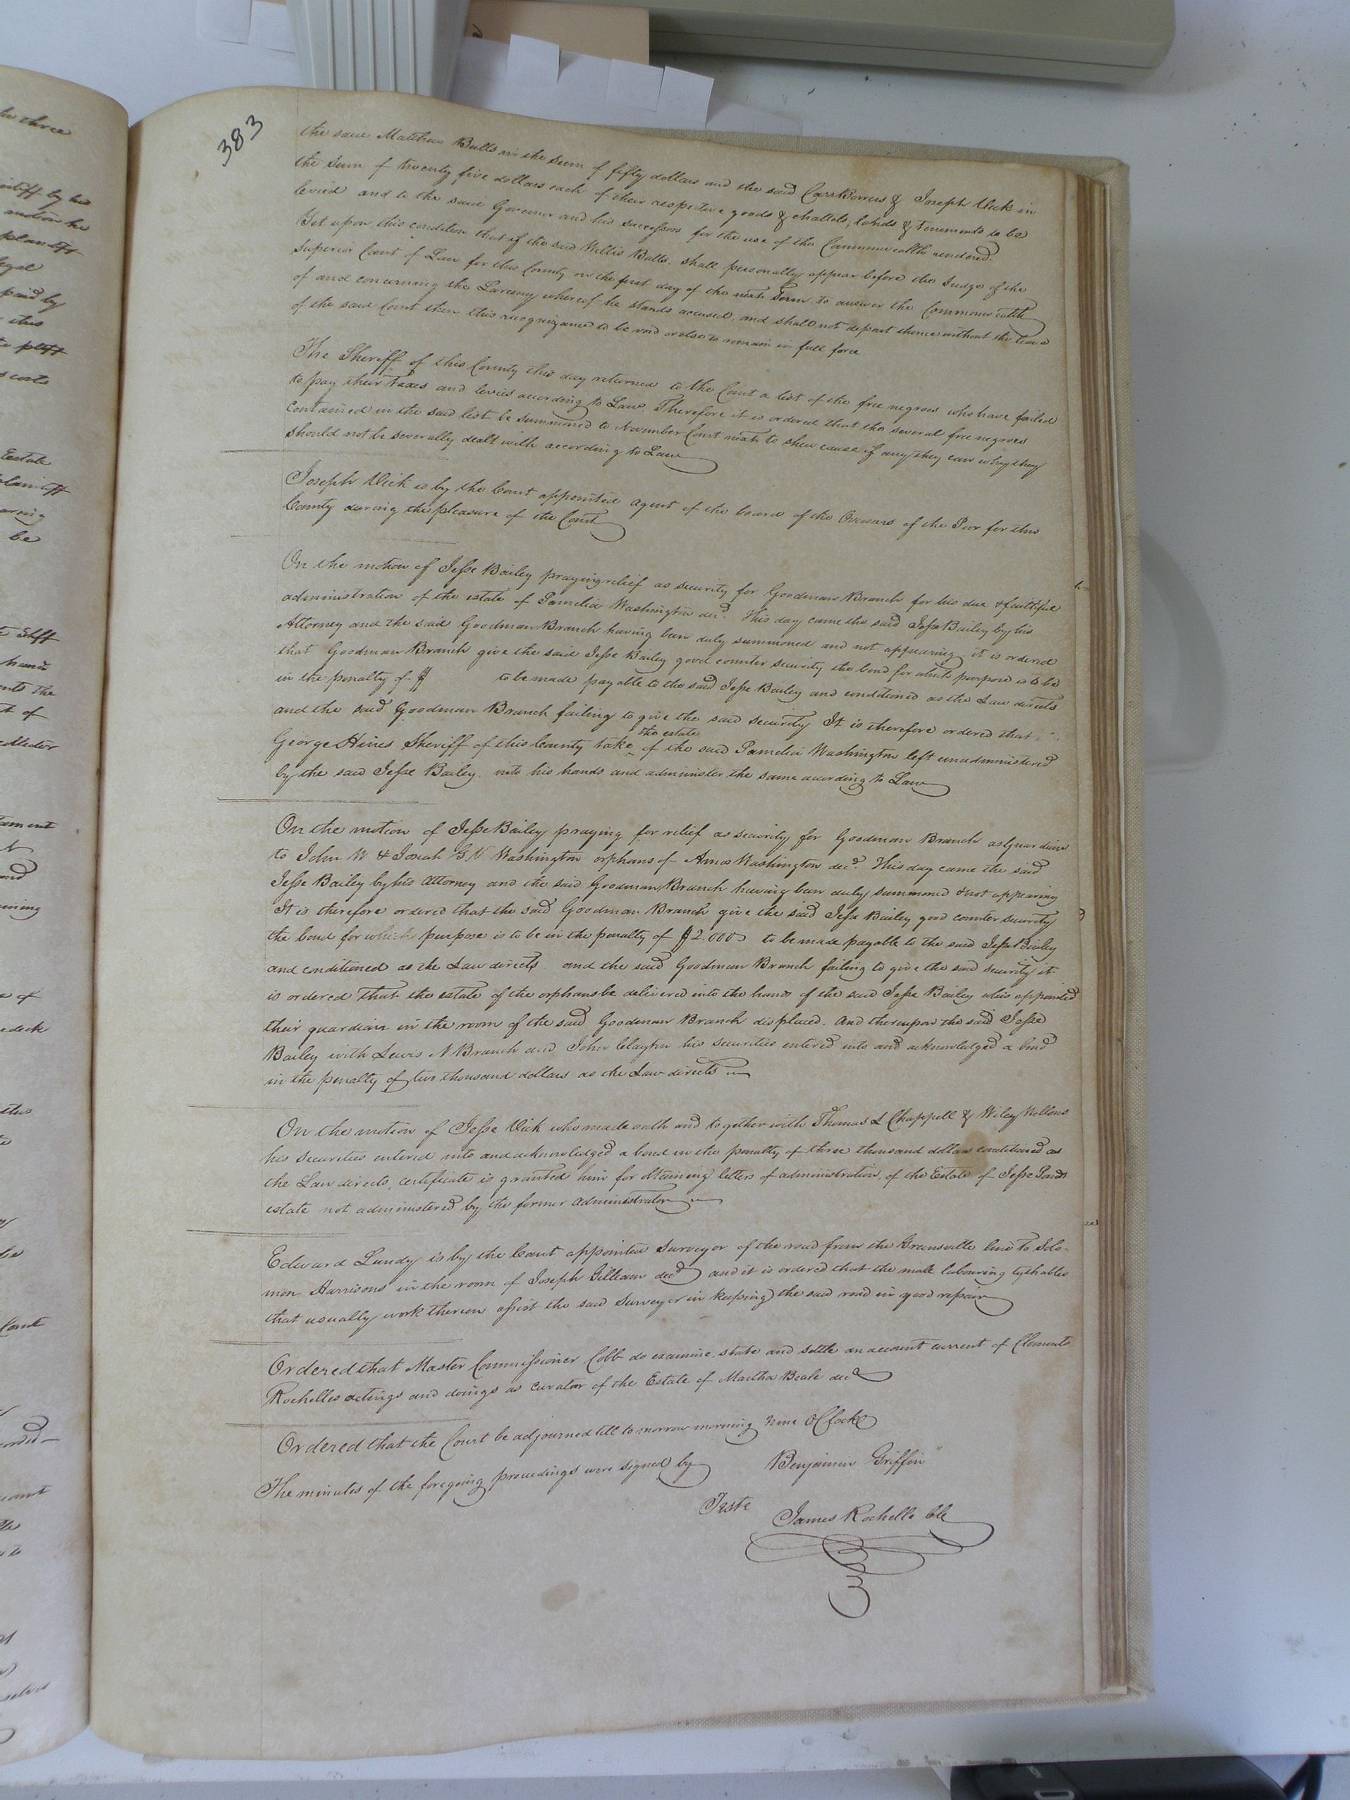 383
the said Matthew Butts in the sum of fifty dollars and the said Carr Bowers & Joseph Vick in
the sum of twenty five dollars each of their respective goods & chattels, lands & tenements to be
levied and to the said Governor and his successors for the use of the Commonwealth rendered.
Yet upon this condition that if the said Willis Butts shall personally appear before the Judge of the
Superior Court of Law for this County on the first day of the next Term to answer the Commonwealth
of and concerning the Larceny whereof he stands accused, and shall not depart thence without the leave
of the said Court then this recognizance to be void or else to remain in full force
The Sheriff of this County this day returned to the Court a list of the free negroes who have failed
to pay their taxes and levies according to Law. Therefore it is ordered that the several free negroes
contained in the said list be summoned to November Court next to shew cause if any they can why they
should not be severally dealt with according to Law
Joseph Vick is by the Court appointed agent of the board of the Overseers of the Poor for this
County during the pleasure of the Court
On the motion of Jesse Bailey praying relief as security for Goodman Branch for his due & faithful
administration of the estate of Pamelia Washington decd. This day came the said Jesse Bailey by his
Attorney and the said Goodman Branch having been duly summoned and not appearing it is ordered
that Goodman Branch give the said Jesse Bailey good counter security the bond for which purpose is to be
in the penalty of $ to be made payable to the said Jesse Bailey and conditioned as the Law directs
and the said Goodman Branch failing to give the said security It is therefore ordered that
George Hines Sheriff of this County take the estate of the said Pamelia Washington left unadministered
by the said Jesse Bailey into his hands and administer the same according to Law
On the motion of Jesse Bailey praying for relief as security for Goodman Branch as Guardian
to John W & Josiah Washington orphans of Amos Washington decd. This day came the said
Jesse Bailey by his Attorney and the said Goodman Branch having been duly summoned & not appearing
It is therefore ordered that the said Goodman Branch give the said Jesse Bailey good counter security
the bond for which purpose is to be in the penalty of $2.000 to be made payable to the said Jesse Bailey
and conditioned as the Law directs and the said Goodman Branch failing to give the said security it
is ordered that the estate of the orphans be delivered into the hands of the said Jesse Bailey who is appointed
their guardian in the room of the said Goodman Branch displaced. And thereupon the said Jesse
Bailey with Lewis N Branch and John Clayton his securities entered into and acknowledged a bond
in the penalty of two thousand dollars as the Law directs
On the motion of Jesse Vick who made oath and together with Thomas L Chappell & Wiley
his securities entered into and acknowledged a bond in the penalty of three thousand dollars conditioned as
the Law directs, certificate is granted him for obtaining letters of administration of the Estate of Jesse Pond
estate not administered by the former administrator
Edward Lundy is by the Court appointed Surveyor of the road from the Greensville line to Solo-
mon Harrisons in the room of Joseph Gilliam decd and it is ordered that the male labouring tythables
that usually work thereon assist the said Surveyor in keeping the said road in good repair
Ordered that Master Commissioner Cobb do examine, state and settle an account current of Clements
Rochelles actings and doings as curator of the Estate of Martha Beale decd
Ordered that the Court be adjourned till to morrow morning nine OClock
The minutes of the foregoing proceedings were signed by Benjamin Griffin
Teste James Rochelle Clk